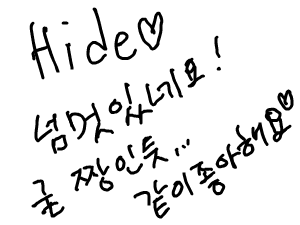 Hide♡
넘멋있네요!
글 짱인듯...
같이좋아해요♡